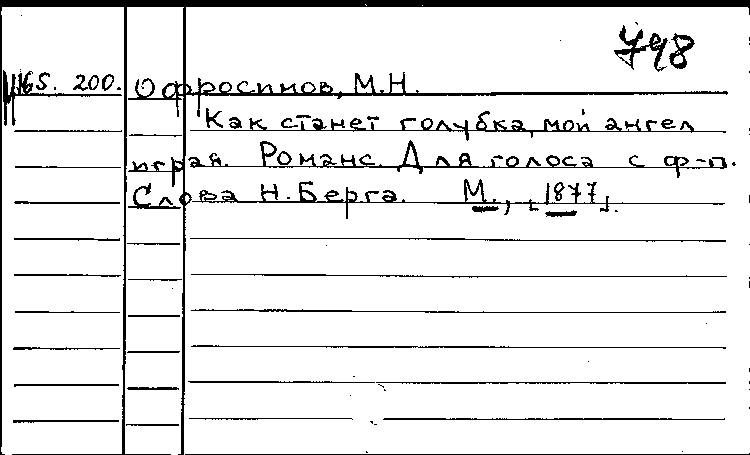 798
165. 200. Офросимов, М.Н.
Как станет голубка, мой ангел
играя. Романс. Для голоса с ф-п.
Слова Н. Берга. М., [1877].